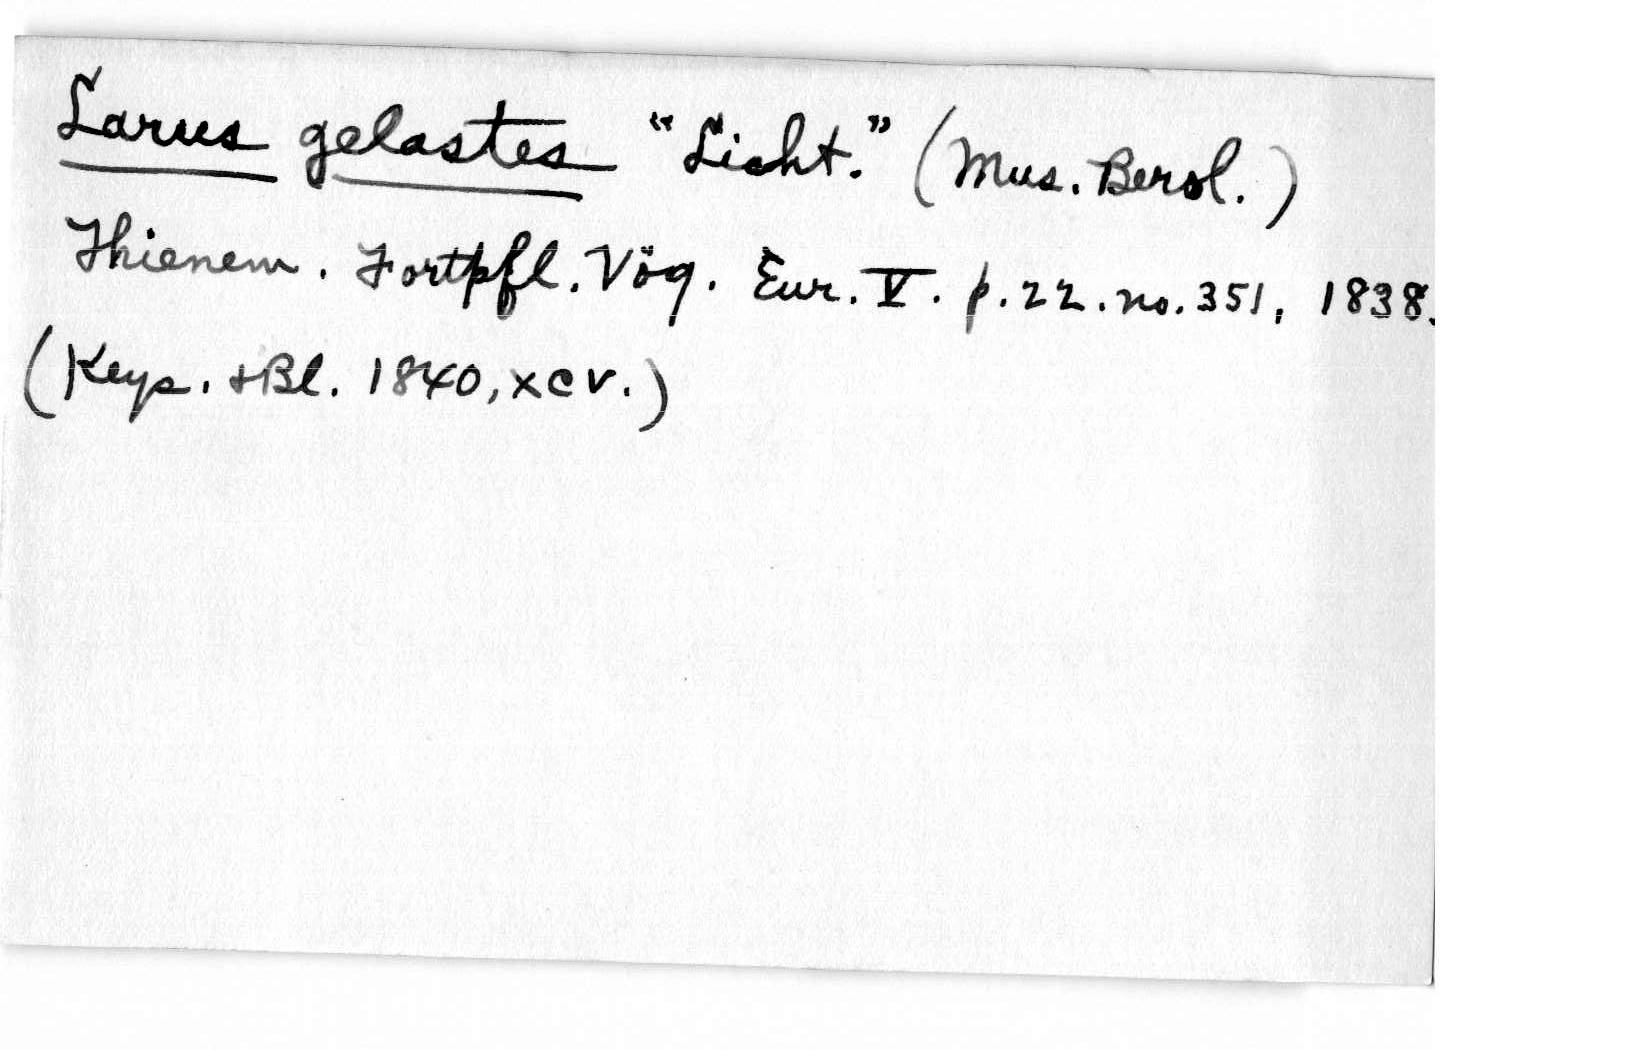 Larus gelastes "Licht." (Mus. Berol.)
Thienem. Fortpfl. Vög. Eur. V. p. 22. no. 351, 1838.
(Keys. + Bl. 1840, xcv.)